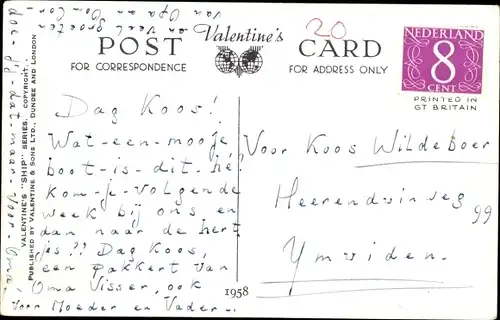 POST
Valentine's
CARD
FOR CORRESPONDENCE
FOR ADDRESS ONLY
20
NEDERLAND
8
CENT
PRINTED IN
GT BRITAIN
VALENTINE'S "SHIP" SERIES. COPYRIGHT.
PUBLISHED BY VALENTINE & SONS LTD., DUNDEE AND LONDON
Dag Koos!
Wat-een-mooje
boot-is-dit-hè.
kom-je-volgende
week bij ons en
dan naar de hert
jes?? Dag Koos,
een pakkert van
Oma Visser, ook
voor Moeder en Vader.
doe-jij-dat-maar-voor-Oma,
en Veel groeten
van Opa en Oom Cor-
1958
Voor Koos Wildeboer
Heerenduinweg 99
Ymuiden.